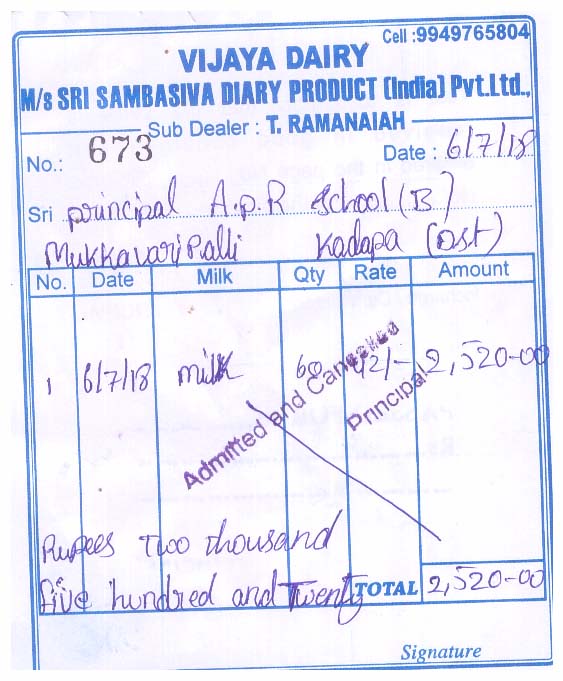 Cell :9949765804
VIJAYA DAIRY
M/s SRI SAMBASIVA DIARY PRODUCT (India) Pvt.Ltd.,
Sub Dealer : T. RAMANAIAH
No.: 673 Date : 6/7/18
Sri principal A.p.R School (B)
Mukkavaripalli Kadapa (Dst)
No. Date Milk Qty Rate Amount
1 6/7/18 milk 60 42/- 2,520-00
Admitted and Cancelled
Principal
Rupees Two thousand
five hundred and Twenty TOTAL 2,520-00
Signature